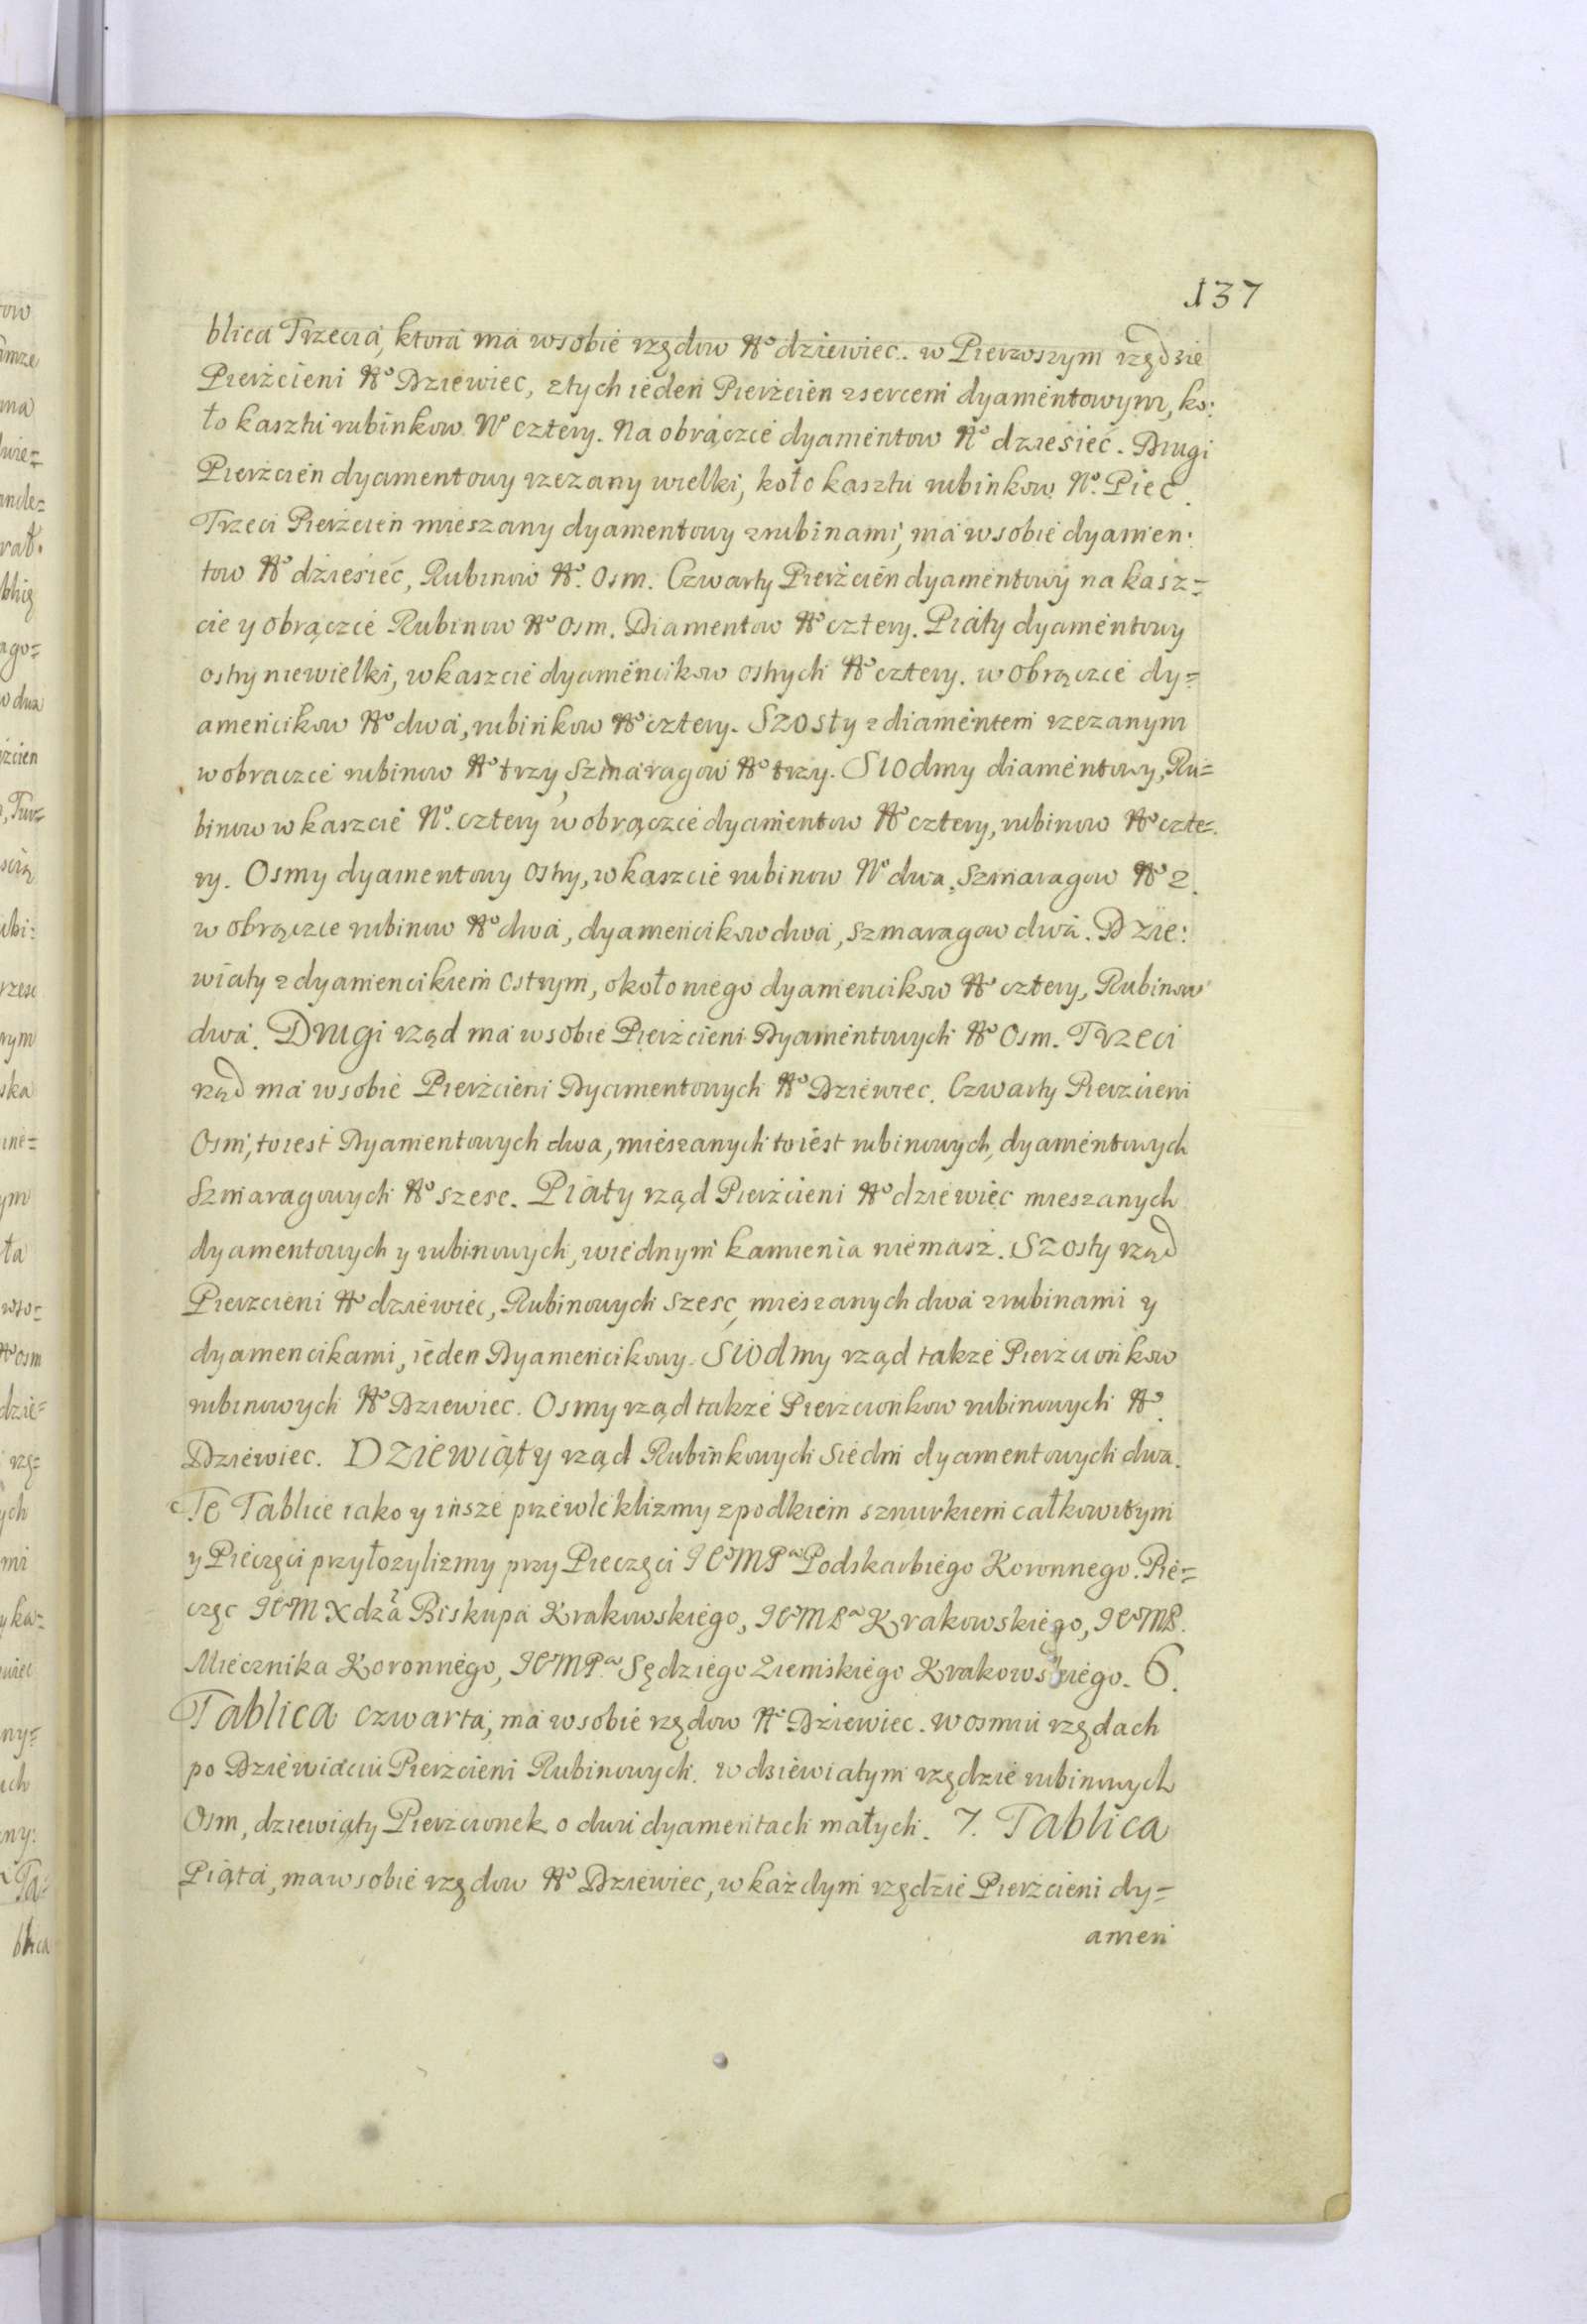 137
blica Trzecia, ktora ma wsobie rzędow No dziewiec. w Pierwszym rzędzie
Pierżcieni No Dziewiec, ztych ieden Pierżcien zsercem dyamentowym, ko:
ło kasztu rubinkow No cztery. Na obrączce dyamentow No dziesieć. Drugi
Pierżcien dyamentowy rzezany wielki, koło kasztu rubinkow No. Pieć.
Trzeci Pierżcien mieszany dyamentowy zrubinami, ma wsobie dyamen:
tow No dziesieć, Rubinow No. Osm. Czwarty Pierżcien dyamentowy na kasz=
cie y obrączce Rubinow No Osm. Diamentow No cztery. Piąty dyamentowy
ostry niewielki, wkaszcie dyamencikow ostrych No cztery. w obrączce dy=
amencikow No dwa, rubinkow No cztery. Szosty z diamentem rzezanym
wobraczce rubinow No trzy, Szmaragow No trzy. Siodmy diamentowy, Ru=
binow w kaszcie No. cztery w obrączce dyamentow No cztery, rubinow No czte=
ry. Osmy dyamentowy Ostry, wkaszcie rubinow No dwa, Szmaragow No 2.
w obrączce rubinow No dwa, dyamencikow dwa, szmaragow dwa. Dzie:
wiąty z dyamencikiem Ostrym, około niego dyamencikow No cztery, Rubinow
dwa. Drugi rząd ma wsobie Pierżcieni Dyamentowych No Osm. Trzeci
rząd ma wsobie Pierżcieni Dyamentowych No Dziewiec. Czwarty Pierzcieni
Osm, toiest Dyamentowych dwa, mieszanych toiest rubinowych, dyamentowych
Szmaragowych No szesc. Piąty rząd Pierżcieni No dziewiec mieszanych
dyamentowych y rubinowych, wiednym kamienia niemasz. Szosty rząd
Pierzcieni No dziewiec, Rubinowych szesc, mieszanych dwa zrubinami y
dyamencikami, ieden Dyamencikowy. Siodmy rząd takze Pierżcionkow
rubinowych No Dziewiec. Osmy rząd takze Pierzcionkow rubinowych No.
Dziewiec. Dziewiąty rząd Rubinkowych Siedm dyamentowych dwa.
Te Tablice iako y insze przewleklizmy zpodkiem sznurkiem całkowitym
y Pieczęci przyłozylizmy przy Pieczęci JEoMPa Podskarbiego Koronnego. Pie=
częc JEoM Xdza Biskupa Krakowskiego, JEoMPa Krakowskiego, JEoMP.
Miecznika Koronnego, JEoMPa Sędziego Ziemskiego Krakowskiego. 6.
Tablica czwarta, ma wsobie rzędow No Dziewiec. wosmiu rzędach
po Dziewiąciu Pierzcieni Rubinowych. w dziewiątym rzędzie rubinowych
Osm, dziewiąty Pierzcionek o dwu dyamentach małych. 7. Tablica
Piąta, ma wsobie rzędow No Dziewiec, w każdym rzędzie Pierżcieni dy=
amen